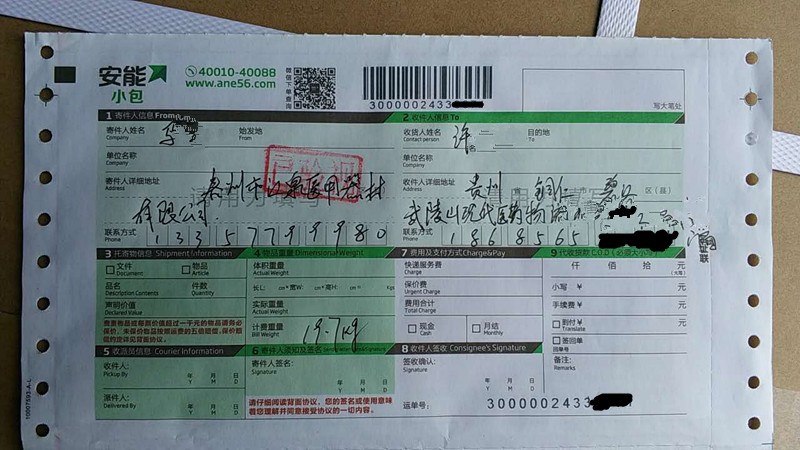 安能
小包
40010-40088
www.ane56.com
微信下单查询
3000002433
写大笔处
1 寄件人信息 From
2 收件人信息 To
寄件人姓名
Name
始发地
From
收货人姓名 许
Contact person
目的地
To
单位名称
Company
单位名称
Company
寄件人详细地址
Address
收件人详细地址 贵州 铜仁
Address
市 区(县)
有限公司
武陵山现代医药物流
联系方式 13357799980
Phone
联系方式 1868565
Phone
3 托寄物信息 Shipment Information
4 物品重量 Dimensional Weight
7 费用及支付方式 Charge&Pay
9 代收货款 C.O.D (必需大小写)
文件
Document
物品
Article
体积重量
Actual Weight
快递服务费
Charge
仟 佰 拾 元
品名
Description Contents
件数
Quantity
长L: cm*宽W: cm*高H: cm
保价费
Urgent Charge
小写 ¥ 元
声明价值
Declared Value
实际重量
Actual Weight
费用合计
Total Charge
手续费 ¥ 元
计费重量 19.7kg
Bill Weight
现金
Cash
月结
Monthly
到付 ¥ 元
Translate
签回单
回单号
5 收派员信息 Courier Information
6 寄件人须知及签名
8 收件人签收 Consignee's Signature
备注:
Remarks
收件人:
Pickup By
年 月 日
Y M D
寄件人签名:
Signature
年 月 日
Y M D
签收确认:
Signature
年 月 日
Y M D
派件人:
Delivered By
年 月 日
Y M D
请仔细阅读背面协议,您的签名或使用意味
着您理解并同意接受协议的一切内容。
运单号: 3000002433